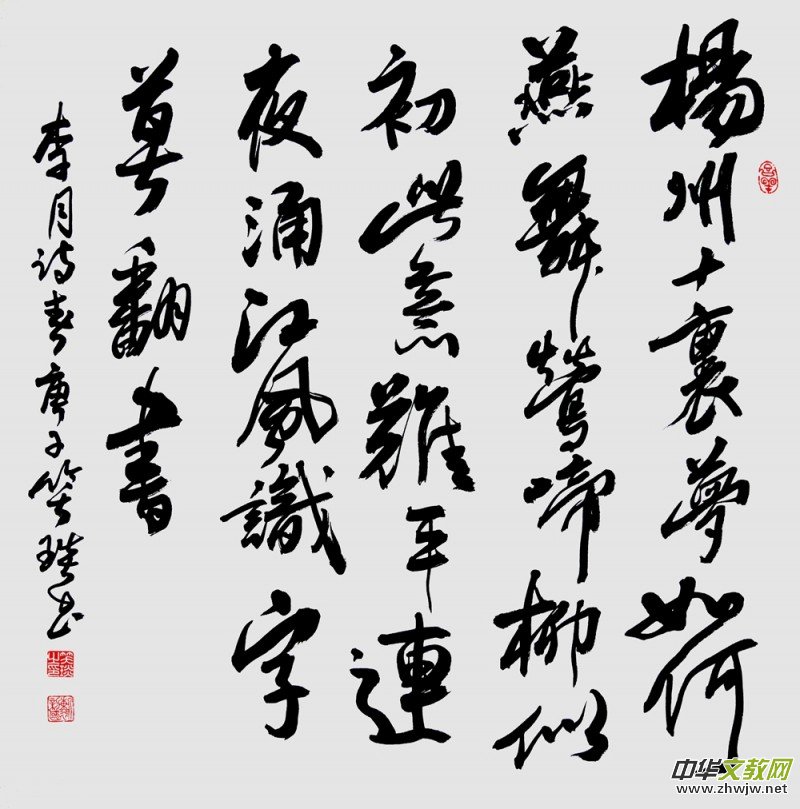 楊州十裏夢如何
燕舞鶯啼柳似
初此意難平連
夜涌江風識字
莫翻書
李月诗春庚子笑书
中华文教网
www.zhwjw.net